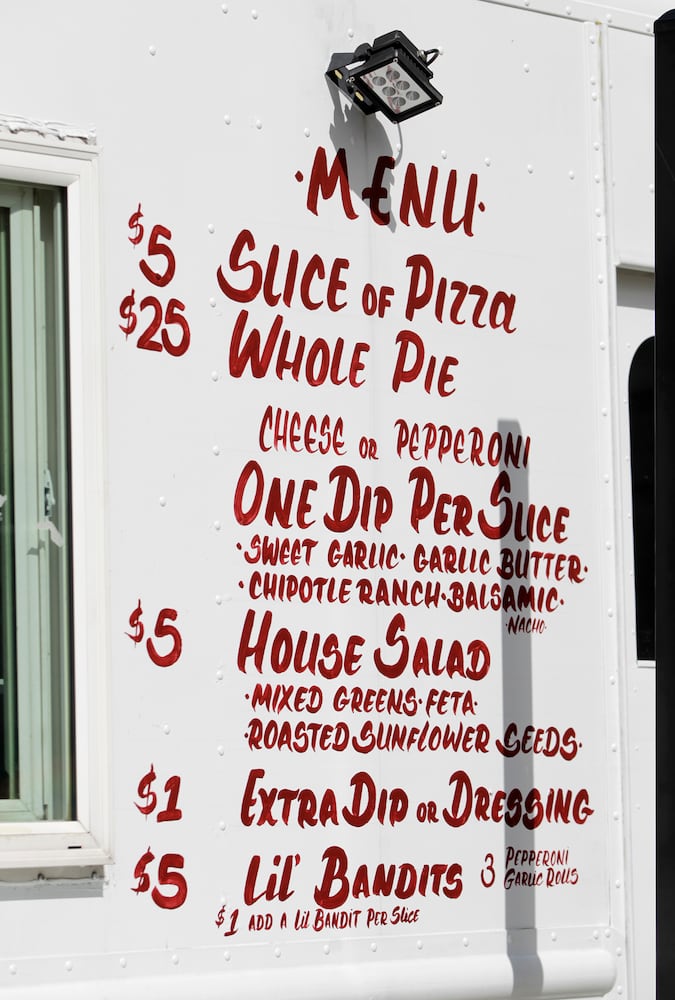 ·MENU·
$5 SLICE OF PIZZA
$25 WHOLE PIE
CHEESE OR PEPPERONI
ONE DIP PER SLICE
·SWEET GARLIC· GARLIC BUTTER·
·CHIPOTLE RANCH·BALSAMIC·
·NACHO·
$5 HOUSE SALAD
·MIXED GREENS·FETA·
·ROASTED SUNFLOWER SEEDS·
$1 EXTRA DIP OR DRESSING
$5 LIL' BANDITS 3 PEPPERONI
GARLIC ROLLS
$1 ADD A LIL BANDIT PER SLICE